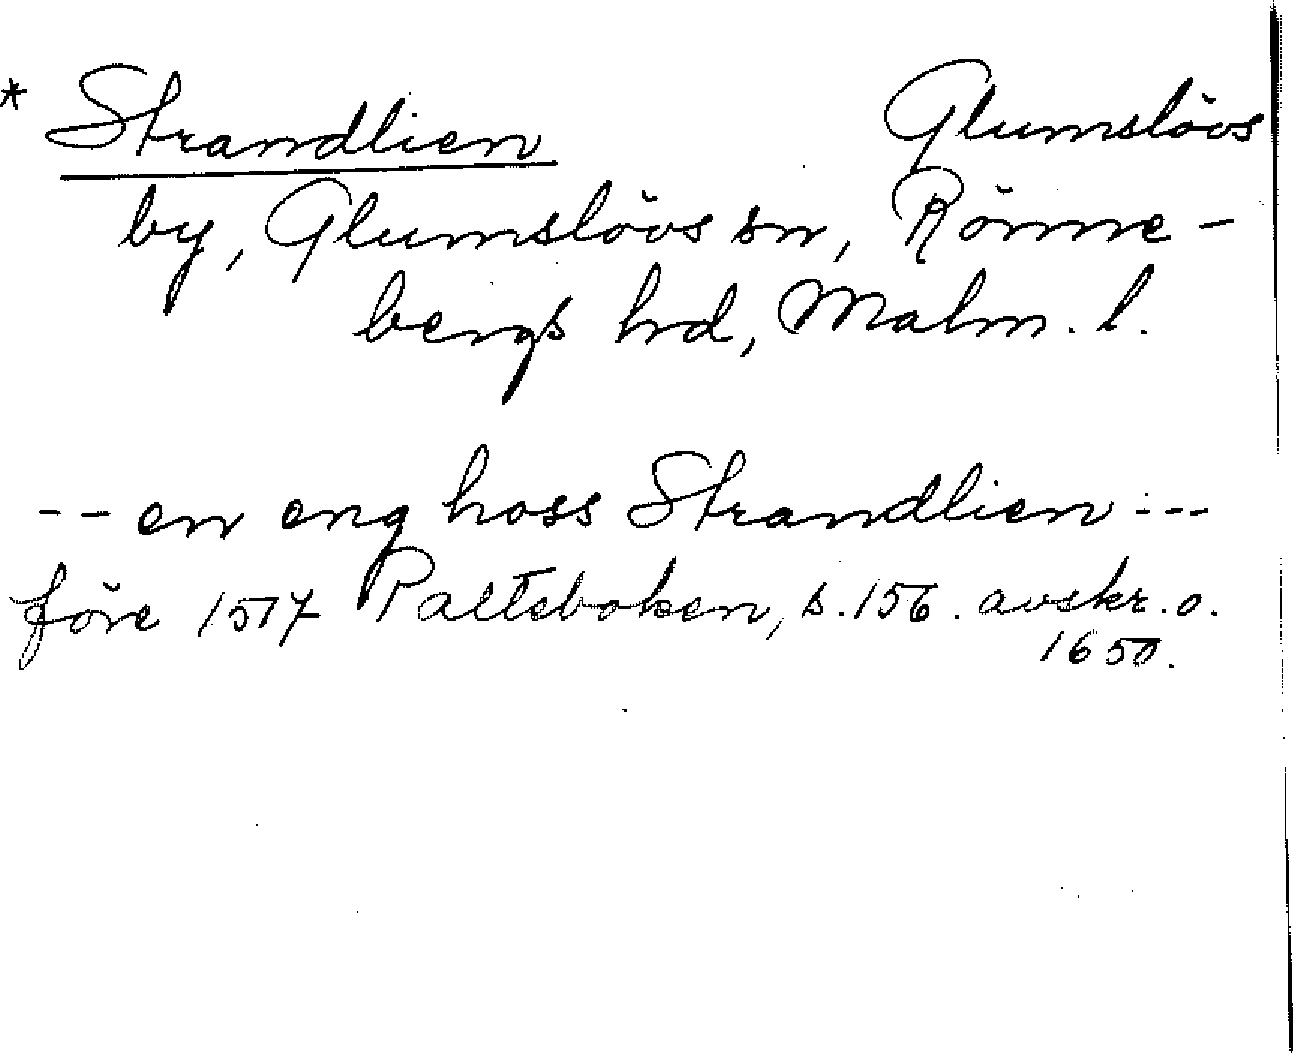 * Strandlien Glumslövs
by, Glumslövs sn, Rönne-
bergs hd, Malm. l.
-- en eng hoss Strandlien ---
före 1517 Palteboken, s. 156. avskr. o.
1650.